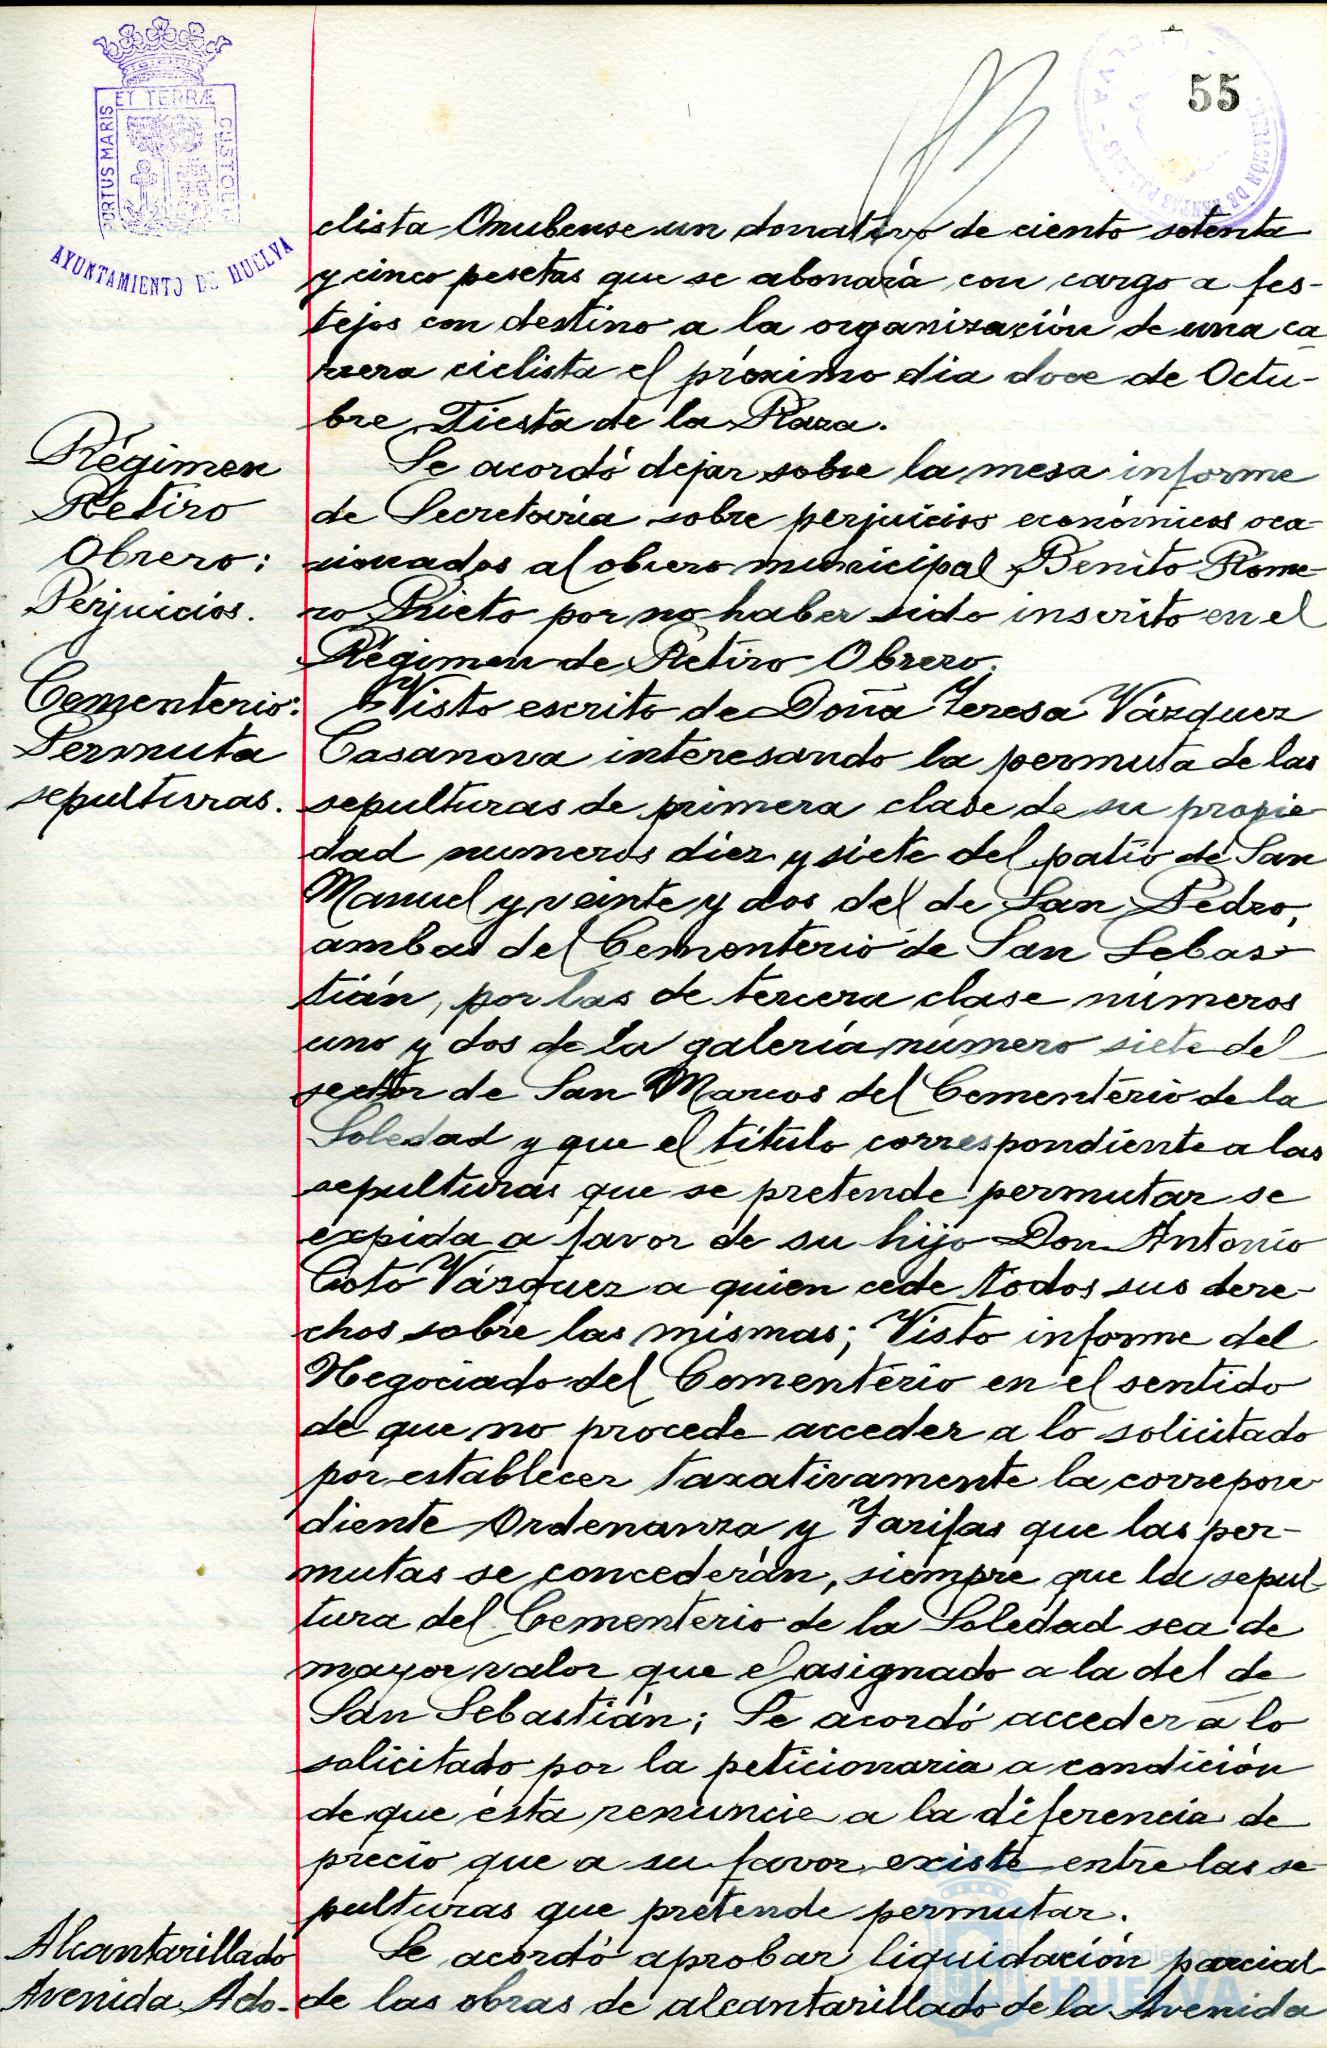 55
PORTUS MARIS
ET TERRÆ
CUSTODIA
AYUNTAMIENTO DE HUELVA
clista Onubense un donativo de ciento setenta
y cinco pesetas que se abonará con cargo a fes-
tejos con destino a la organización de una ca-
rrera ciclista el próximo dia doce de Octu-
bre, Fiesta de la Raza.
Régimen
Retiro
Obrero:
Perjuicios.
Se acordó dejar sobre la mesa informe
de Secretaría sobre perjuicios económicos oca-
sionados al obrero municipal Benito Rome-
ro Prieto por no haber sido inscrito en el
Régimen de Retiro Obrero.
Cementerio:
Permuta
sepulturas.
Visto escrito de Doña Teresa Vázquez
Casanova interesando la permuta de las
sepulturas de primera clase de su propie-
dad numeros diez y siete del patio de San
Manuel y veinte y dos del de San Pedro,
ambas del Cementerio de San Sebas-
tián, por las de tercera clase números
uno y dos de la galería número siete del
sector de San Marcos del Cementerio de la
Soledad y que el título correspondiente a las
sepulturas que se pretende permutar se
expida a favor de su hijo Don Antonio
Coto Vázquez a quien cede todos sus dere-
chos sobre las mismas; Visto informe del
Negociado del Cementerio en el sentido
de que no procede acceder a lo solicitado
por establecer taxativamente la correpon-
diente Ordenanza y Tarifas que las per-
mutas se concederán, siempre que la sepul-
tura del Cementerio de la Soledad sea de
mayor valor que el asignado a la del de
San Sebastián; Se acordó acceder a lo
solicitado por la peticionaria a condición
de que ésta renuncie a la diferencia de
precio que a su favor existe entre las se-
pulturas que pretende permutar.
Alcantarillado
Avenida Ado-
Se acordó aprobar liquidación parcial
de las obras de alcantarillado de la Avenida
Ayuntamiento de
HUELVA